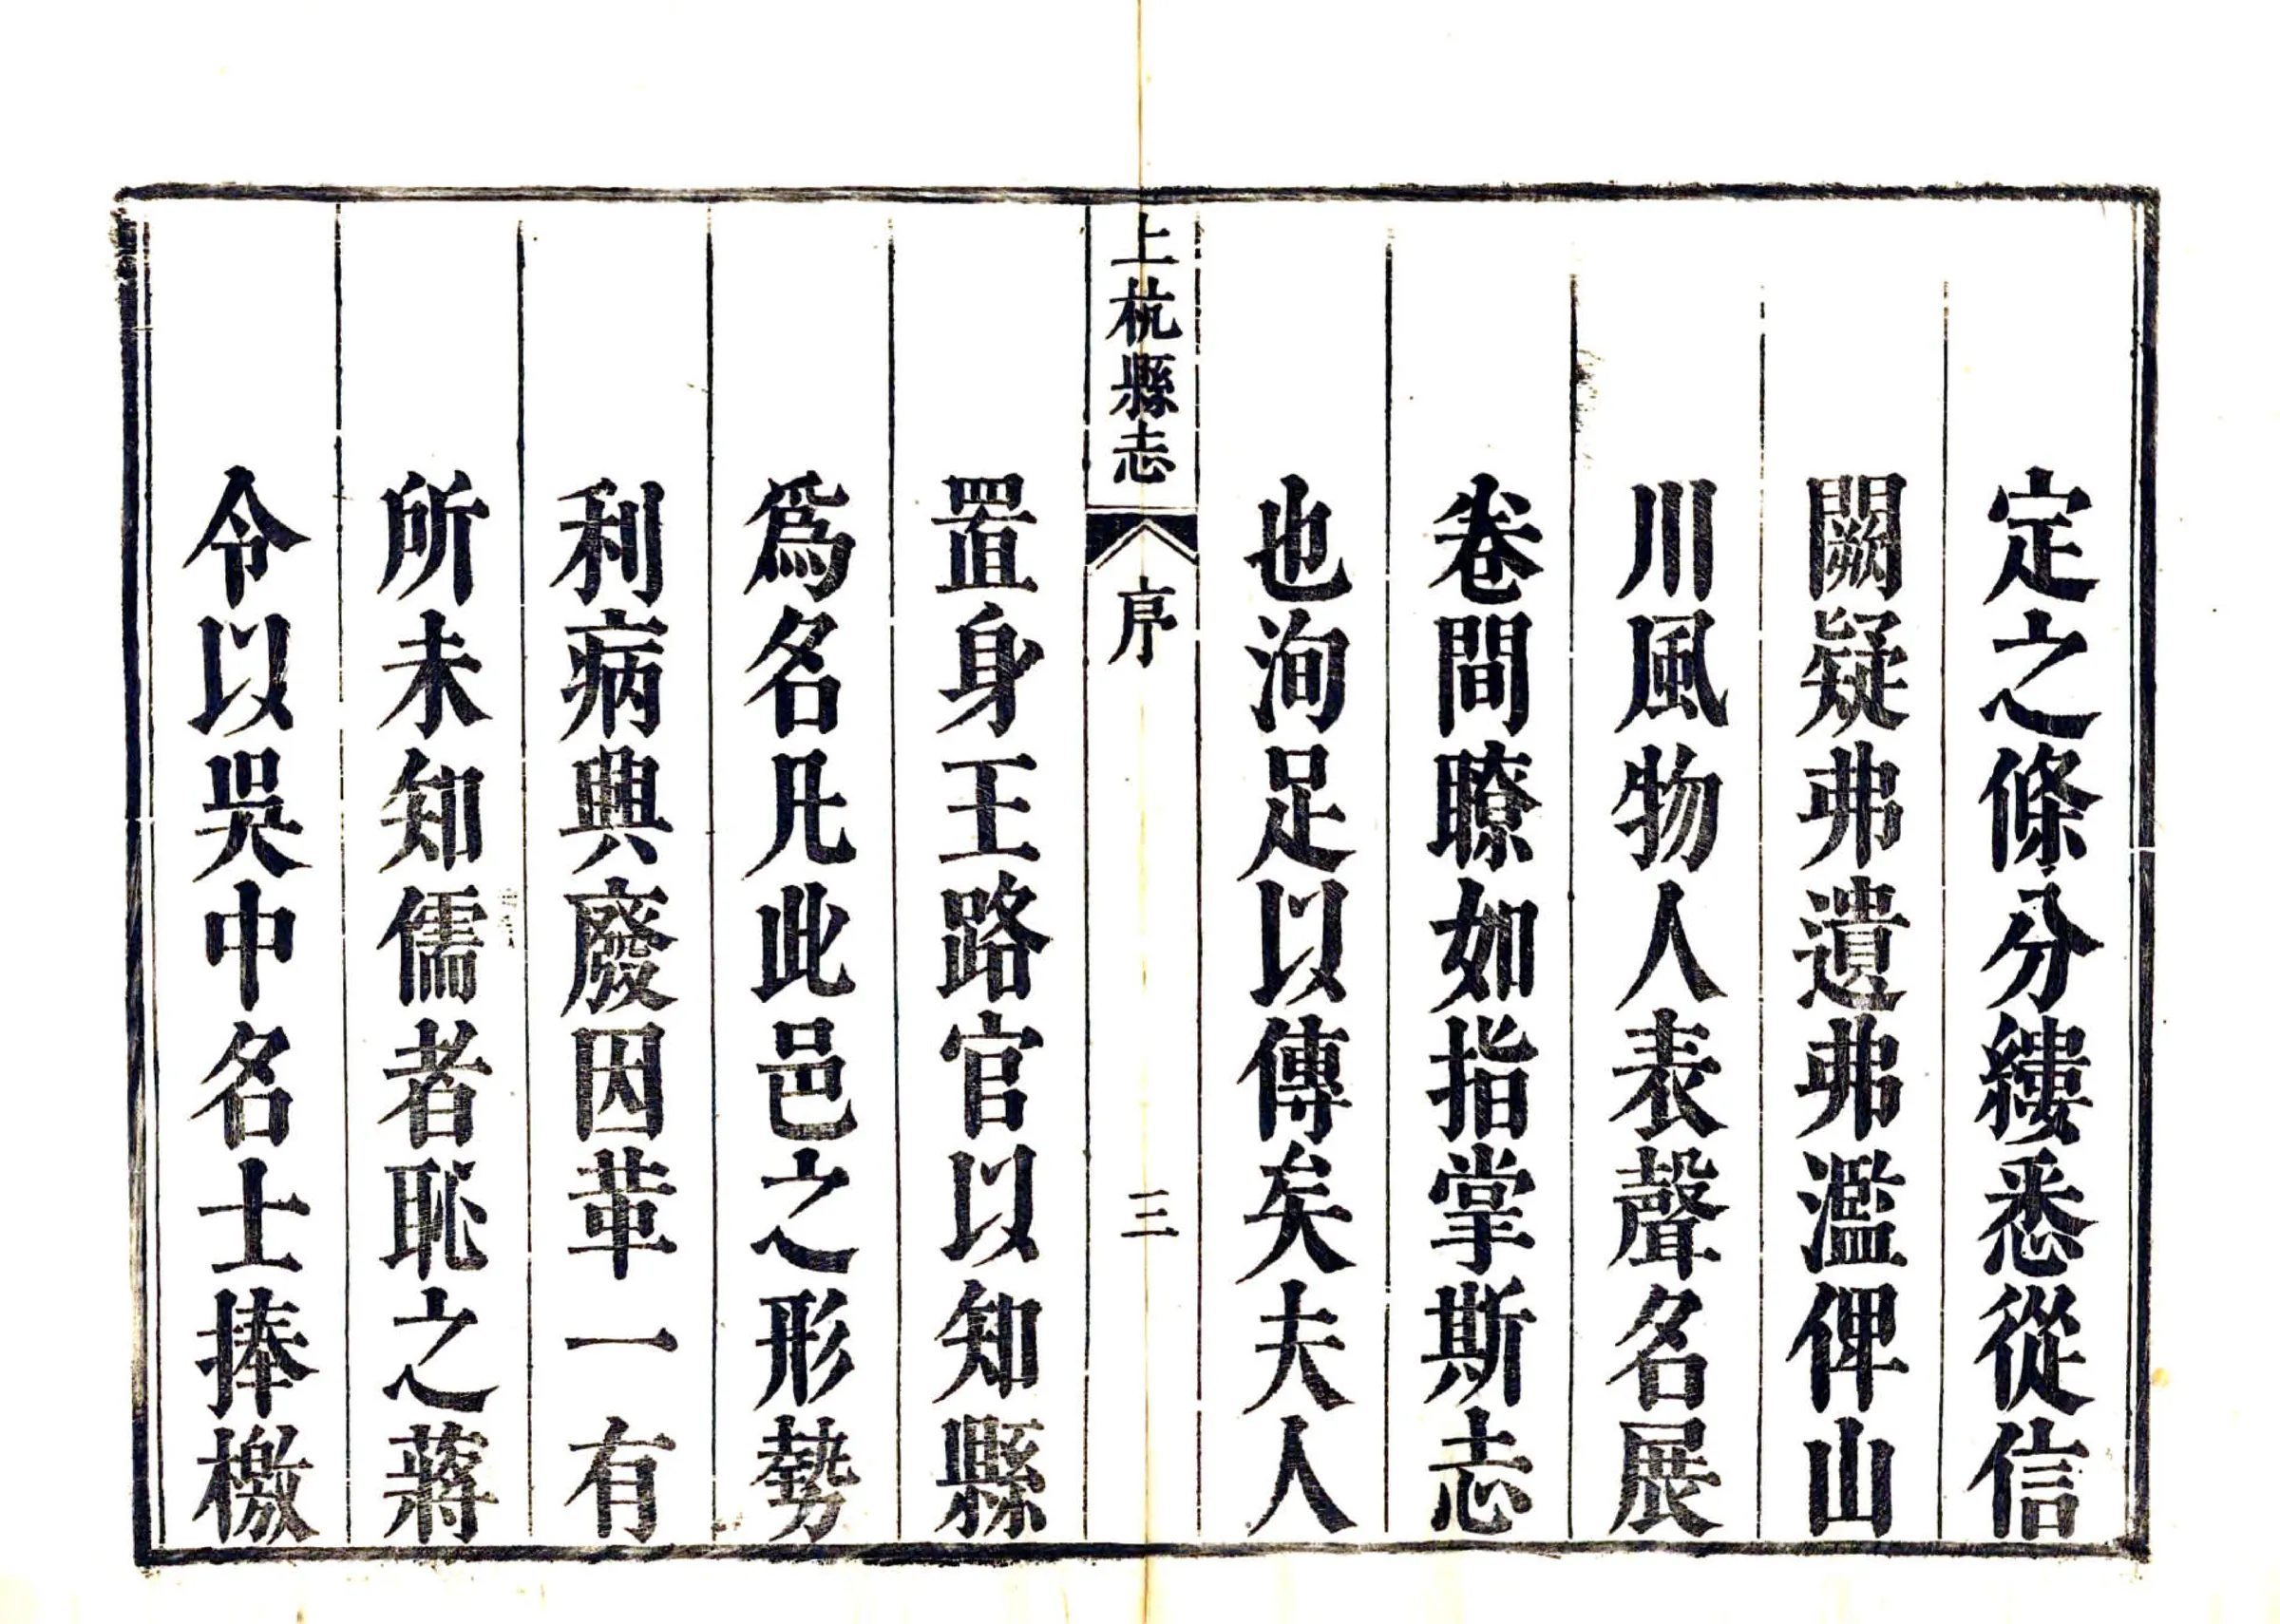 定之條分縷悉從信
闕疑弗遺弗濫俾山
川風物人表聲名展
卷間瞭如指掌斯志
也洵足以傳矣夫人
上杭縣志
序
三
置身王路官以知縣
爲名凡此邑之形勢
利病興廢因革一有
所未知儒者恥之蔣
令以吳中名士捧檄